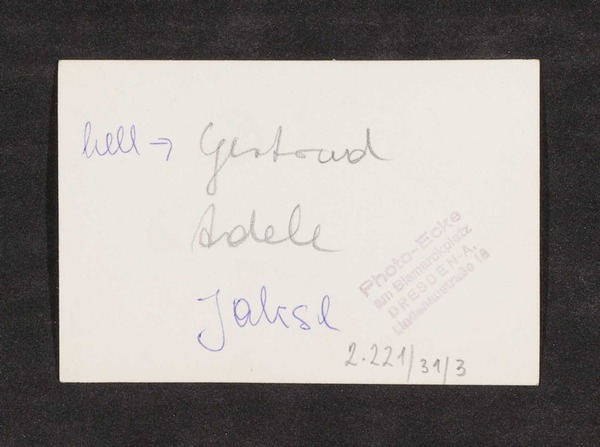 hell → Gertrud
Adele
Jakse
Photo-Ecke
am Bismarckplatz
DRESDEN-A.
Lindenaustraße 18
2.221/31/3